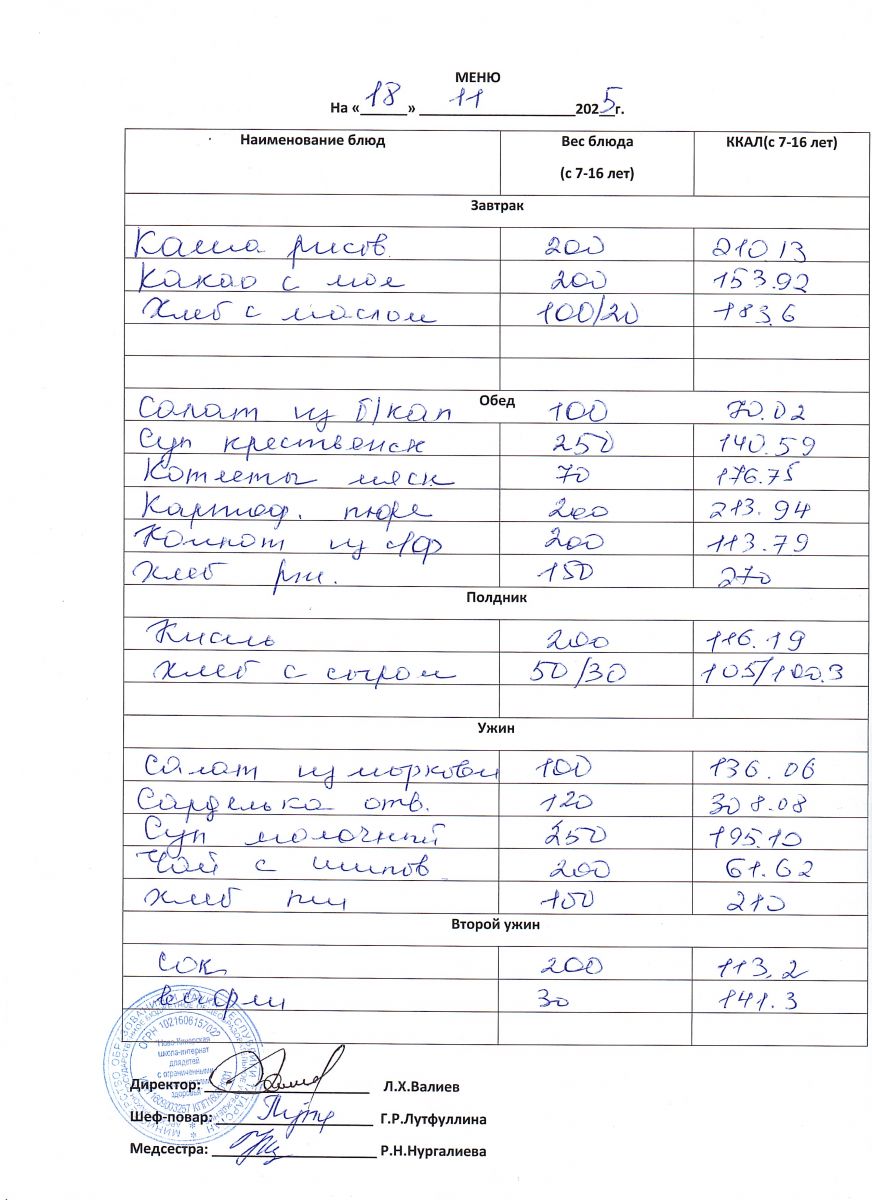 МЕНЮ
На « 18 » 11 2025 г.
Наименование блюд Вес блюда (с 7-16 лет) ККАЛ(с 7-16 лет)
Завтрак
Каша рисов. 200 210.13
Какао с мол 200 153.92
Хлеб с маслом 100/20 183.6
Обед
Салат из б/кап 100 70.02
Суп крестьянск 250 140.59
Котлеты мяск 70 176.75
Картоф. пюре 200 213.94
Компот из с/ф 200 113.79
Хлеб рж. 150 270
Полдник
Кисель 200 116.19
Хлеб с сыром 50/30 105/100.3
Ужин
Салат из моркови 100 136.06
Сарделька отв. 120 308.08
Суп молочный 250 195.10
Чай с шипов 200 61.62
Хлеб пш 100 210
Второй ужин
Сок 200 113,2
вафли 30 141.3
ОГРН 1021606157022
Ново-Кинерская
школа-интернат
для детей
с ограниченными
здоровья
Директор: Л.Х.Валиев
Шеф-повар: Г.Р.Лутфуллина
Медсестра: Р.Н.Нургалиева